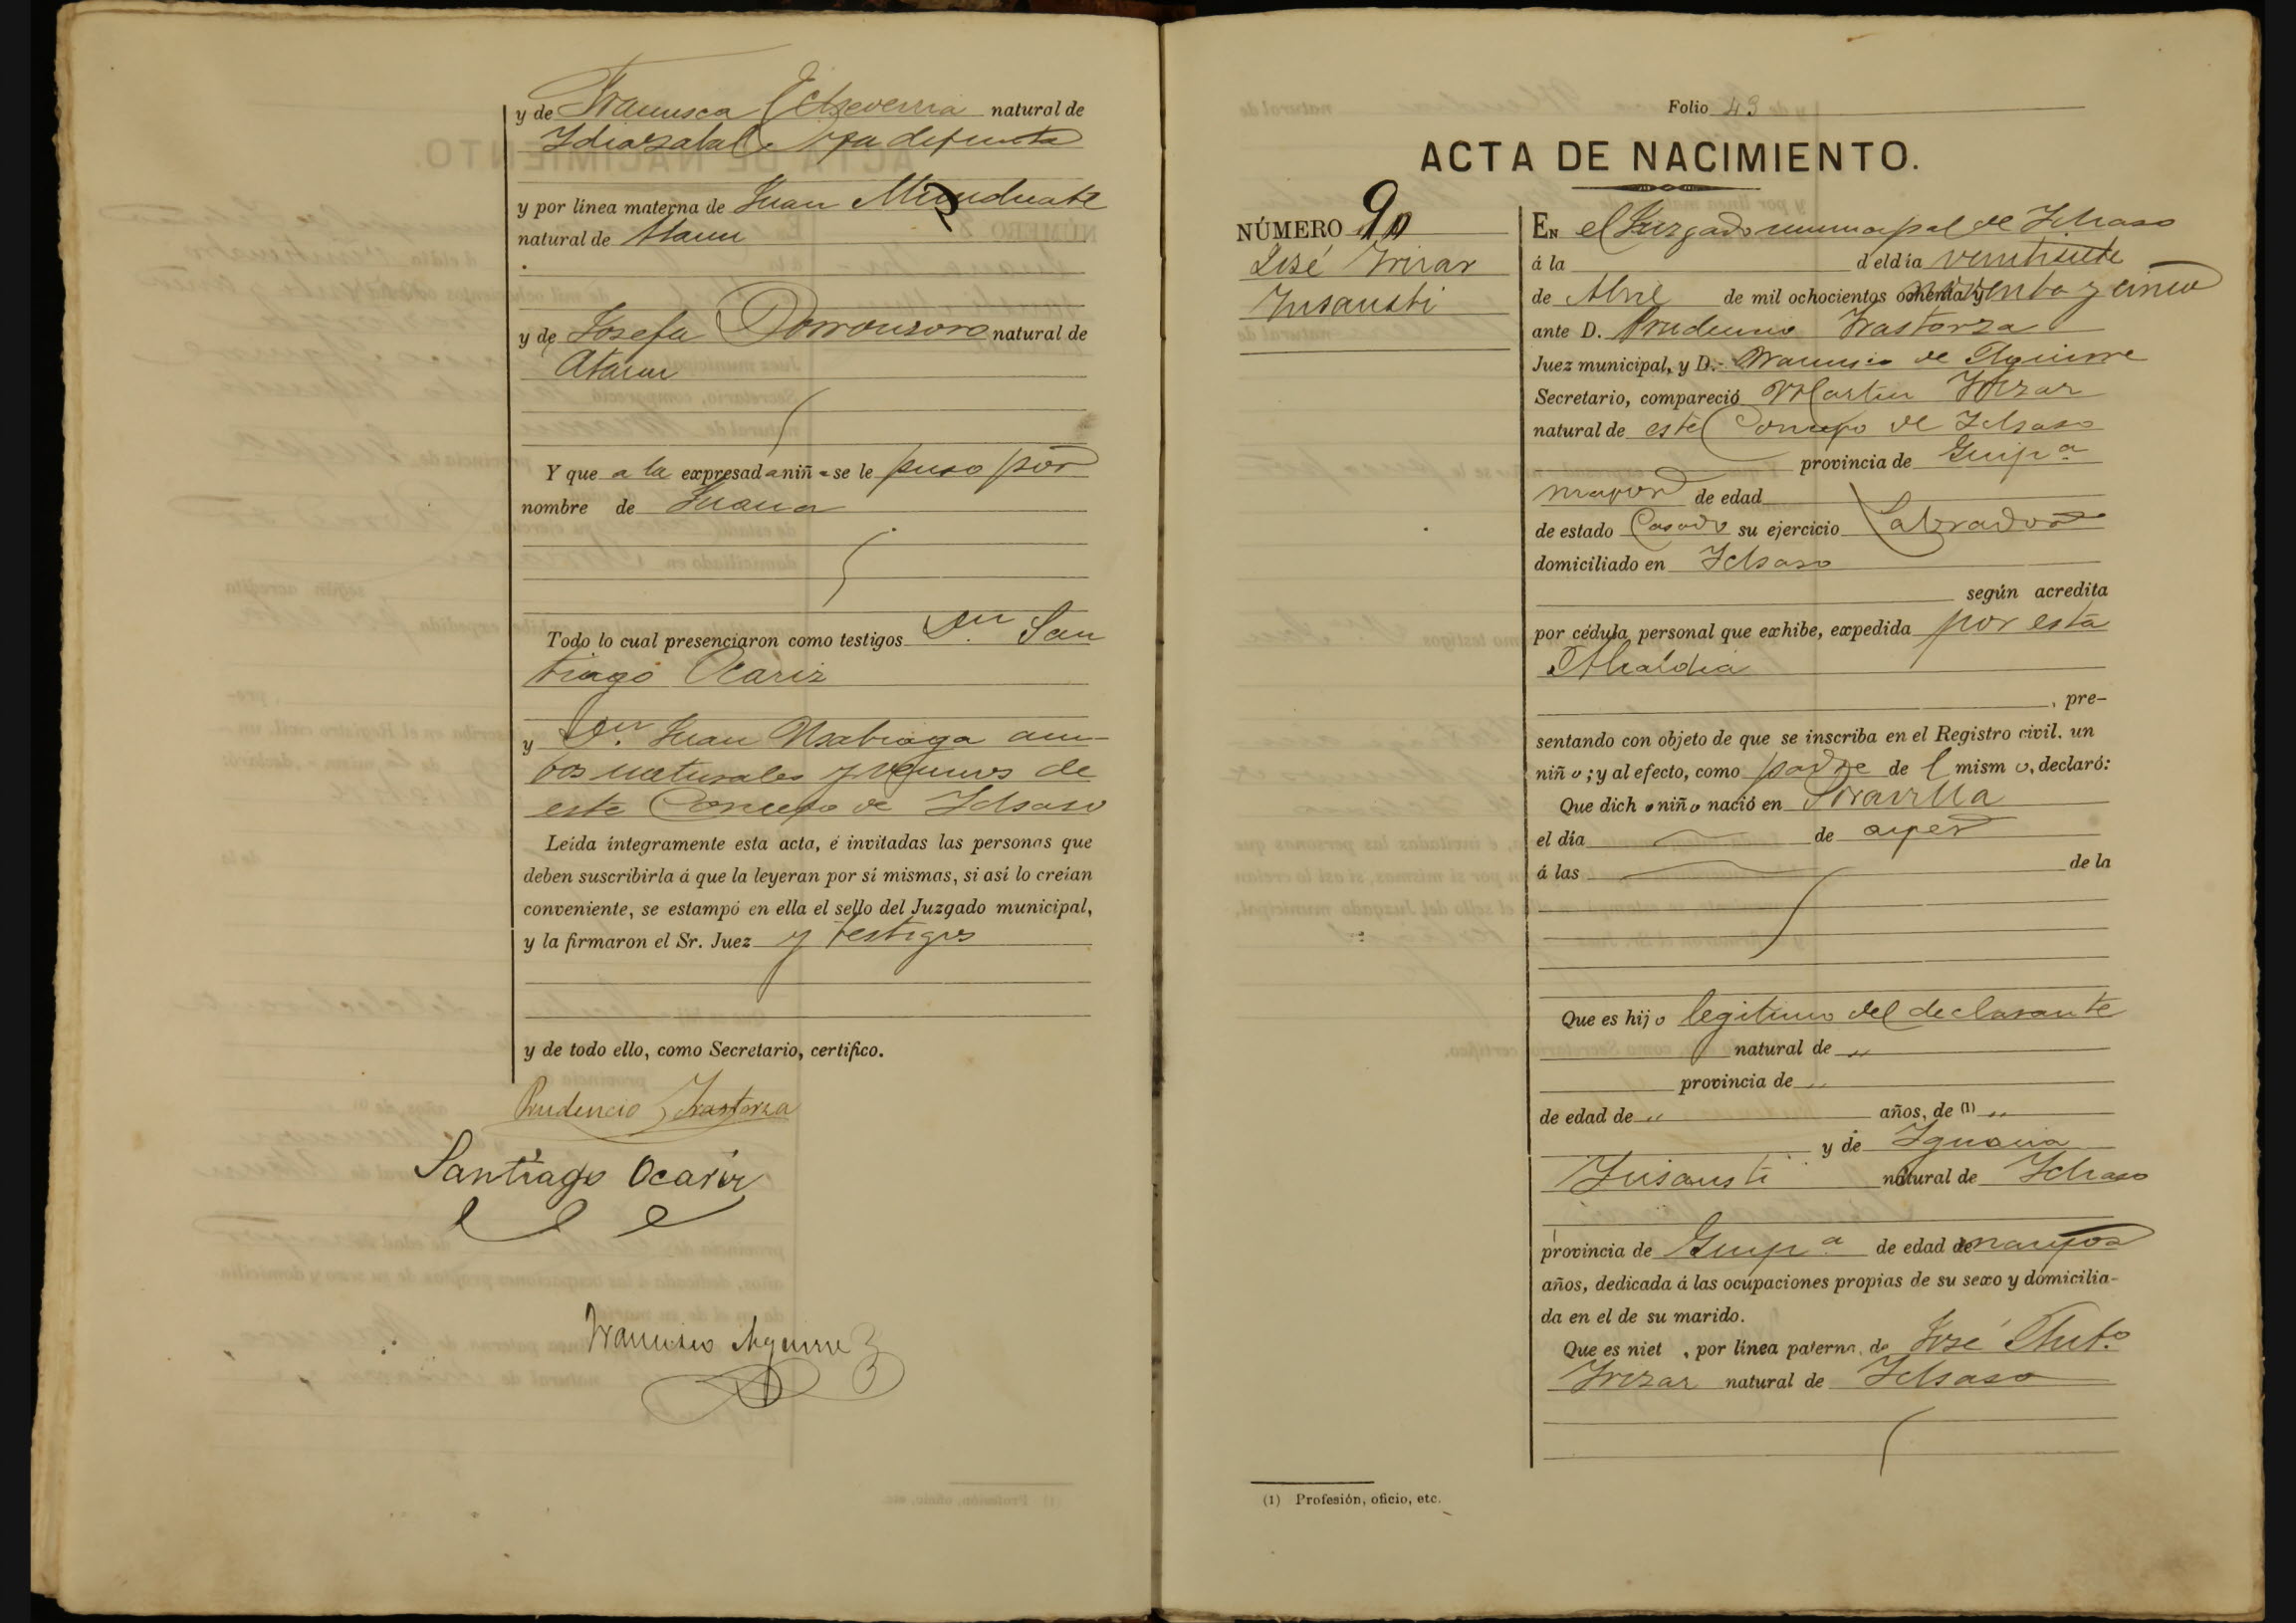 y de Francisca Echeverria natural de
Idiazabal ya difunta
y por línea materna de Juan Munduate
natural de Ataun
y de Josefa Dorronsoro natural de
Ataun
Y que a la expresad a niñ a se le puso por
nombre de Juana
Todo lo cual presenciaron como testigos Dn. San
tiago Ocariz
y Dn. Juan Usabiaga am-
bos naturales y vecinos de
este Concejo de Ichaso
Leída íntegramente esta acta, é invitadas las personas que
deben suscribirla á que la leyeran por sí mismas, si así lo creían
conveniente, se estampó en ella el sello del Juzgado municipal,
y la firmaron el Sr. Juez y testigos
y de todo ello, como Secretario, certifico.
Prudencio Irastorza
Santiago Ocariz
Francisco Aguirre
Folio 43
ACTA DE NACIMIENTO.
NÚMERO 9
José Irizar
Insausti
EN el Juzgado municipal de Ichaso
á la del día veintisiete
de Abril de mil ochocientos ochenta y noventa y cinco
ante D. Prudencio Irastorza
Juez municipal, y D. Francisco de Aguirre
Secretario, compareció Martin Irizar
natural de este Concejo de Ichaso
provincia de Guipa
mayor de edad
de estado Casado su ejercicio Labrador
domiciliado en Ichaso
según acredita
por cédula personal que exhibe, expedida por esta
Alcaldia
, pre-
sentando con objeto de que se inscriba en el Registro civil. un
niñ o; y al efecto, como padre de l mism o, declaró:
Que dich o niñ o nació en
el día de ayer
á las de la
Que es hij o legitimo del declarante
natural de "
provincia de "
de edad de " años, de (1) "
y de Ignacia
Insausti natural de Ichaso
provincia de Guipa de edad de mayor
años, dedicada á las ocupaciones propias de su sexo y domicilia-
da en el de su marido.
Que es niet , por línea paterna, de José Anto.
Irizar natural de Ichaso
(1) Profesión, oficio, etc.